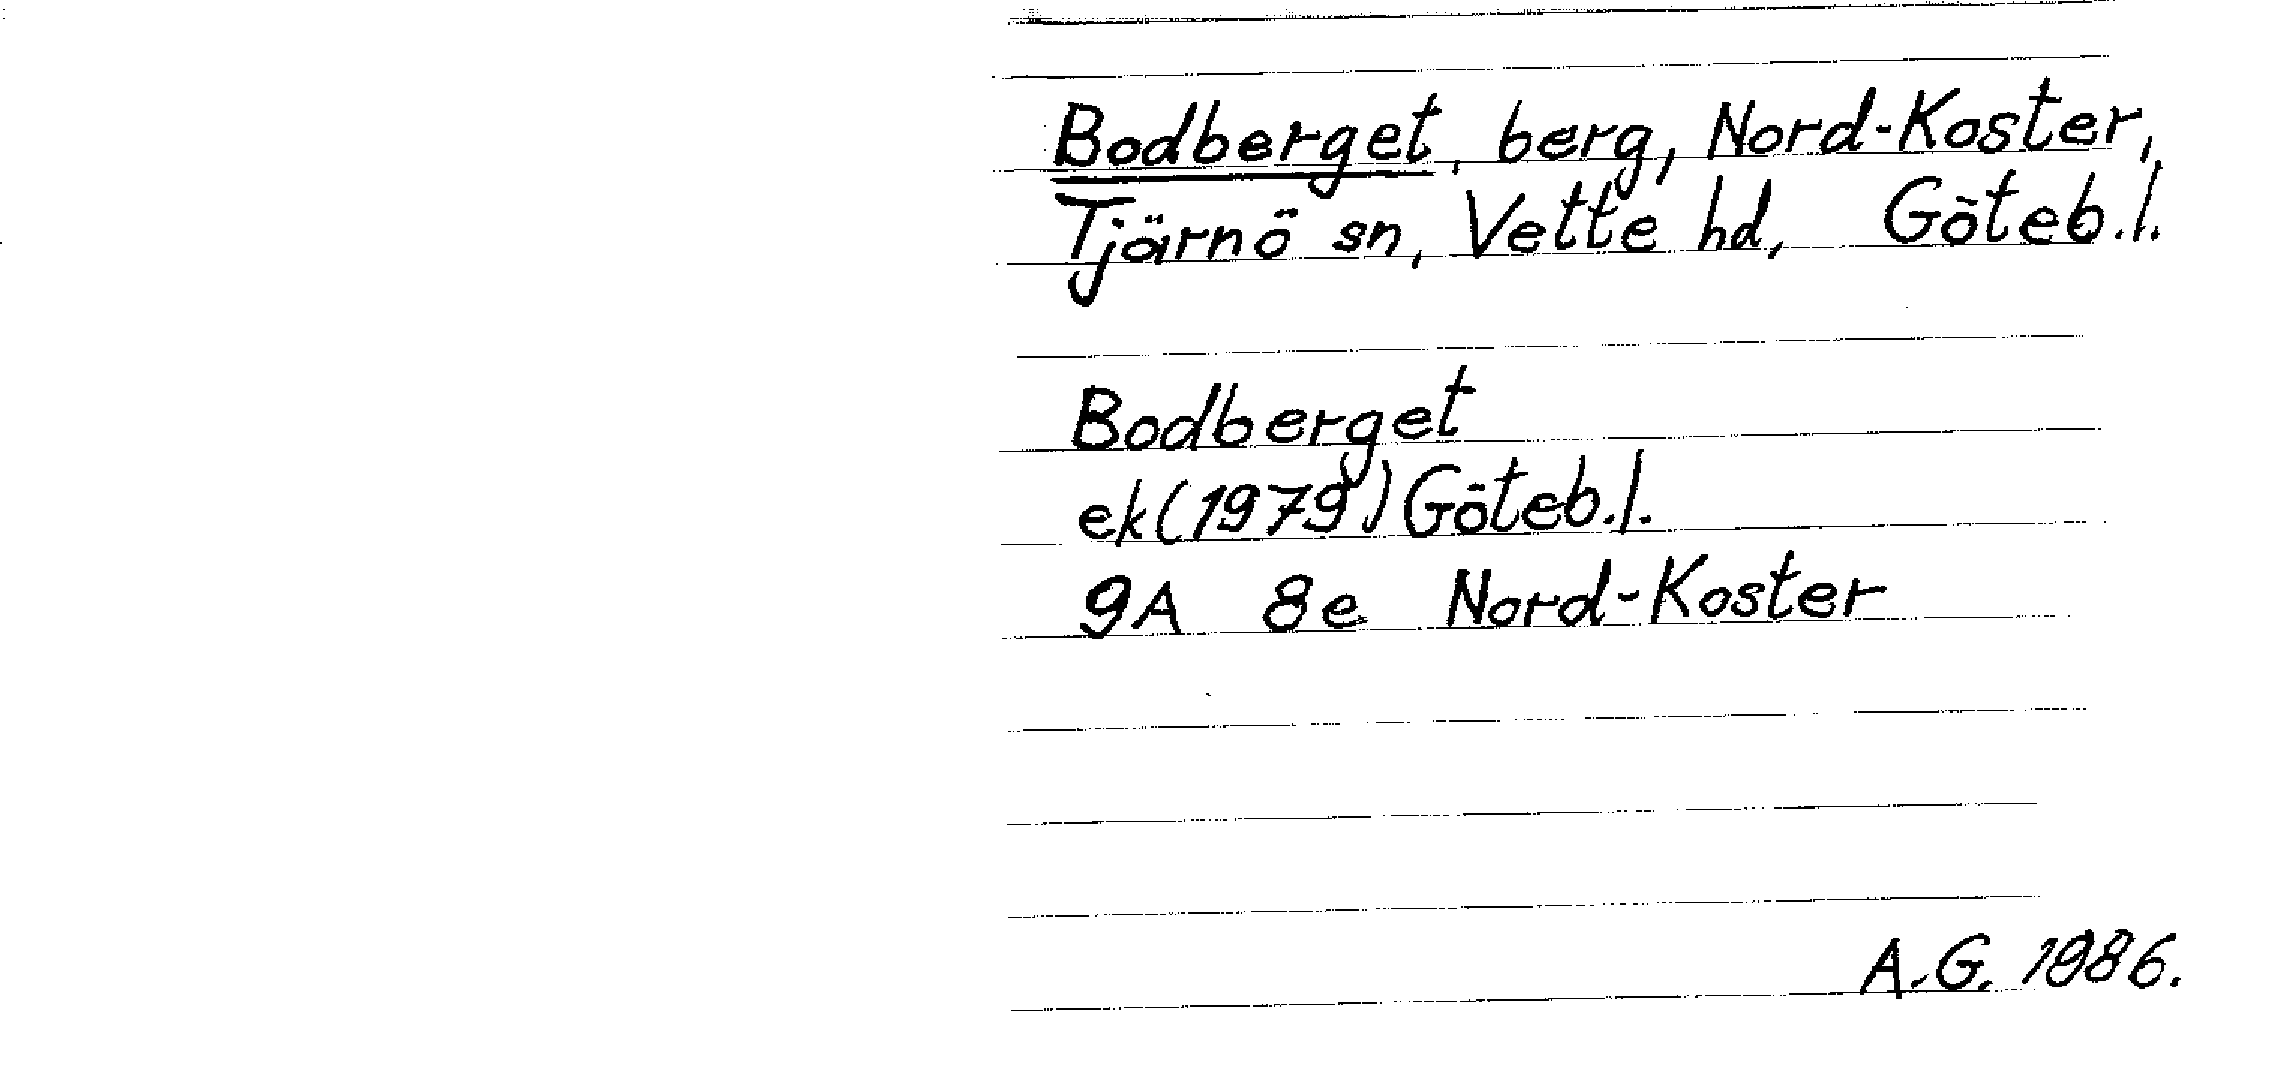 Bodberget, berg, Nord-Koster,
Tjärnö sn, Vette hd, Göteb.l.
Bodberget
ek(1979) Göteb.l.
9A 8e Nord-Koster
A.G. 1986.